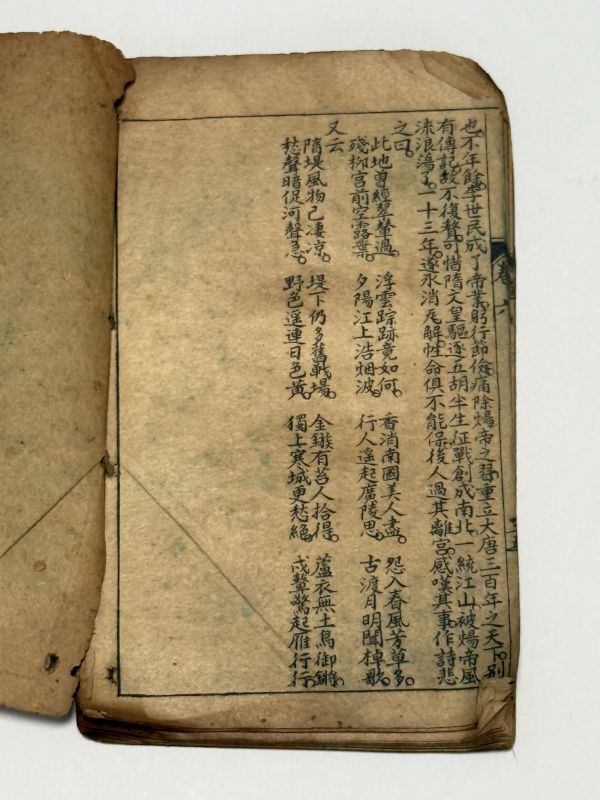 卷六
也。不年餘。李世民成了帝業。躬行節儉。痛除煬帝之習。重立大唐三百年之天下。別
有傳記。故不復贅。可惜隋文皇驅逐五胡。半生征戰。創成南北一統江山。被煬帝風
流浪蕩了一十三年。遂氷消瓦解。性命俱不能保。後人過其離宮。感嘆其事。作詩悲
之曰。
此地曾經翠輦過。 浮雲踪跡竟如何。 香消南國美人盡。 怨入春風芳草多。
殘柳宮前空露葉。 夕陽江上浩烟波。 行人遙起廣陵思。 古渡月明聞棹歌。
又云
隋堤風物已凄凉。 堤下仍多舊戰場。 金鏃有苔人拾得。 蘆衣無土鳥御將。
愁聲暗促河聲急。 野色遥連日色黃。 獨上寒城更愁絕。 戍鼙驚起雁行行。